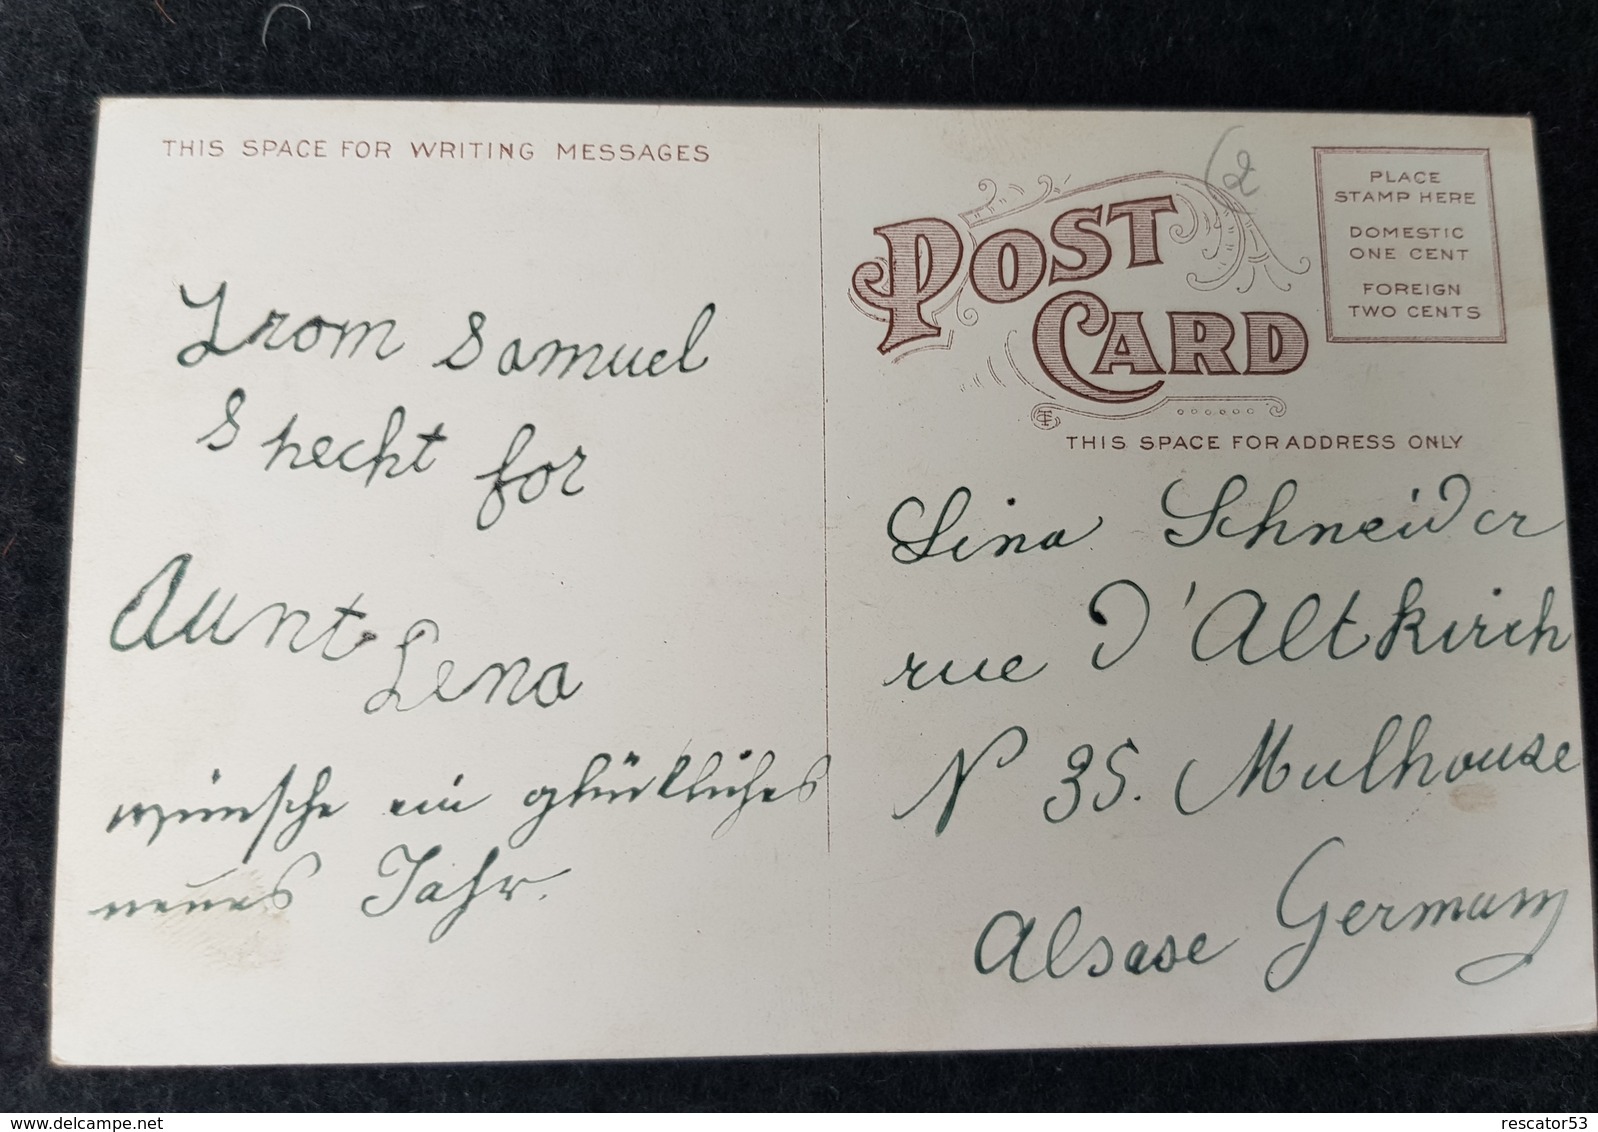 THIS SPACE FOR WRITING MESSAGES
From Samuel
Shecht for
Aunt
Lena
wünsche ein glückliches
neues Jahr.
2
POST
CARD
PLACE
STAMP HERE
DOMESTIC
ONE CENT
FOREIGN
TWO CENTS
THIS SPACE FOR ADDRESS ONLY
Lina Schneider
rue d'Altkirch
N 35. Mulhouse
Alsase Germany
delcampe.net
rescator53